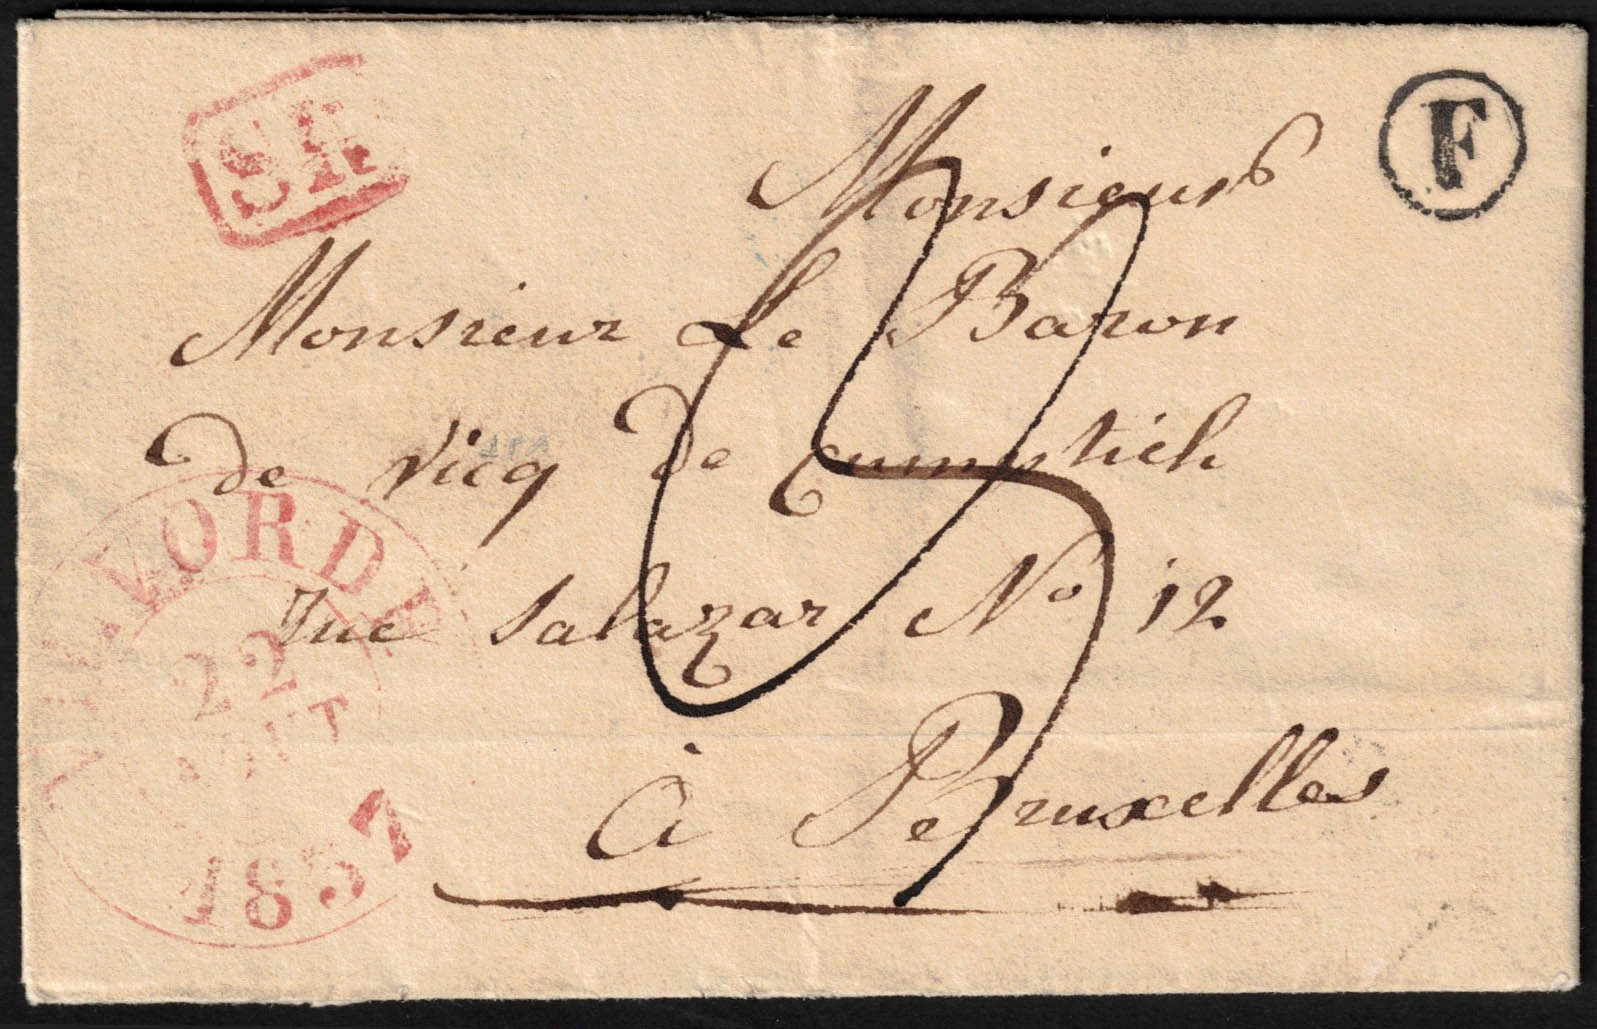 SR
F
Monsieur
Monsieur Le Baron
de Vicq de Cumptich
rue Salazar No 12
à Bruxelles
VILVORDE
22
AOUT
1837